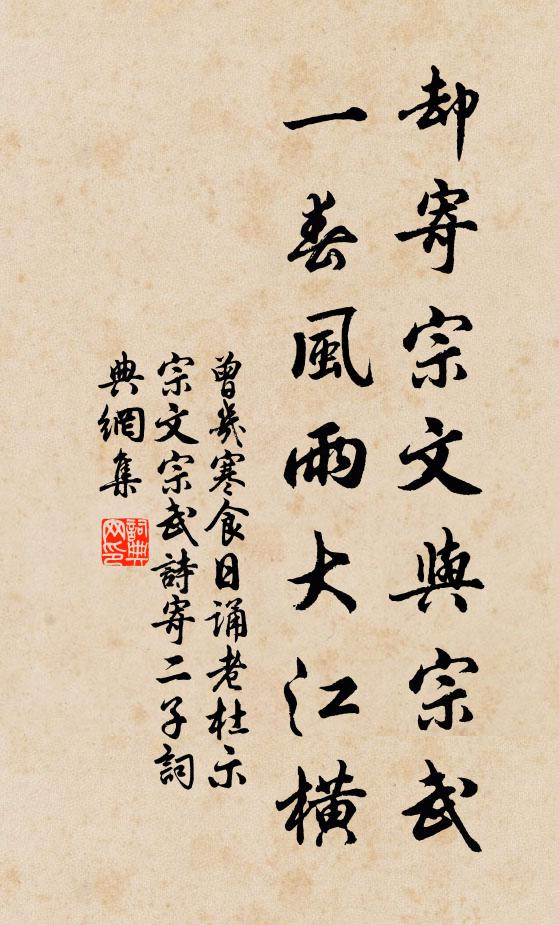 却寄宗文與宗武
一春風雨大江橫
曾幾寒食日誦老杜示
宗文宗武詩寄二子詞
典網集
詞典
网印